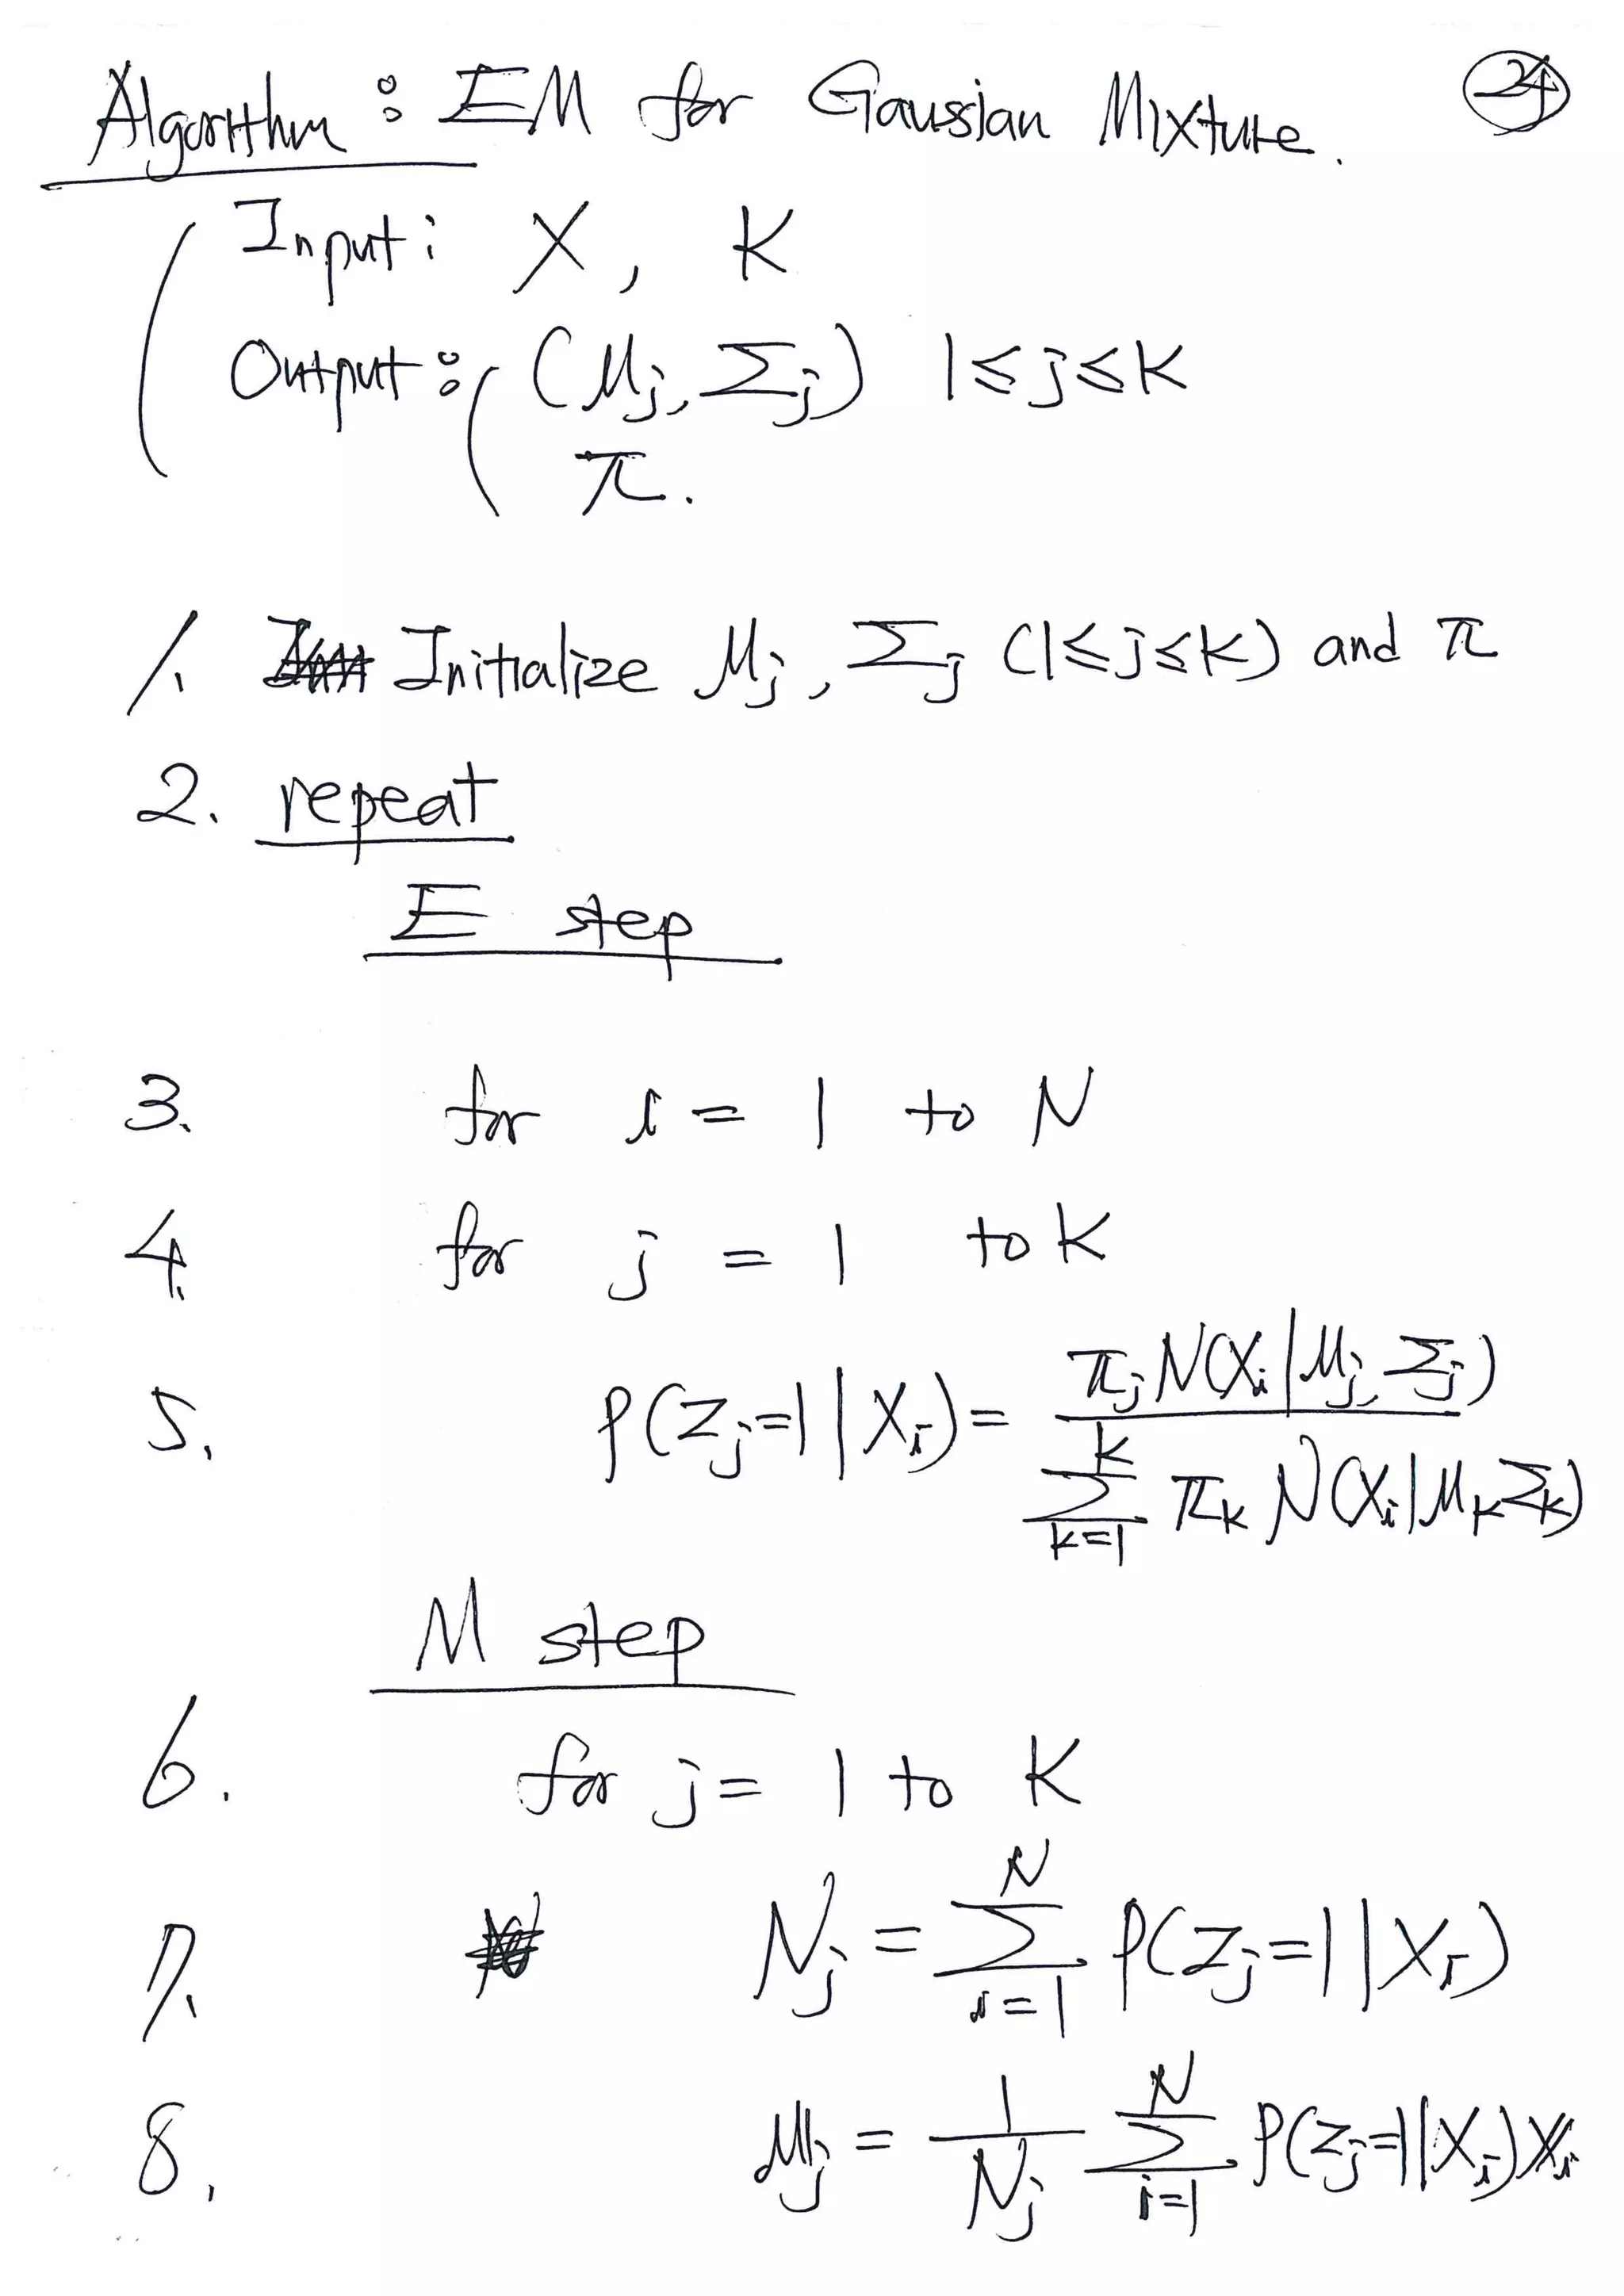 Algorithm : EM for Gaussian Mixture. 24
Input: X, K
Output: (μj, Σj) 1≤j≤K
π.
1. Initialize μj, Σj (1≤j≤K) and π
2. repeat
E step
3. for i = 1 to N
4. for j = 1 to K
5. P(Zj=1|Xi) = πj N(Xi|μj, Σj) / Σ_{k=1}^{K} πk N(Xi|μk Σk)
M step
6. for j = 1 to K
7. Nj = Σ_{i=1}^{N} P(Zj=1|Xi)
8. μj = 1/Nj Σ_{i=1}^{N} P(Zj=1|Xi)Xi